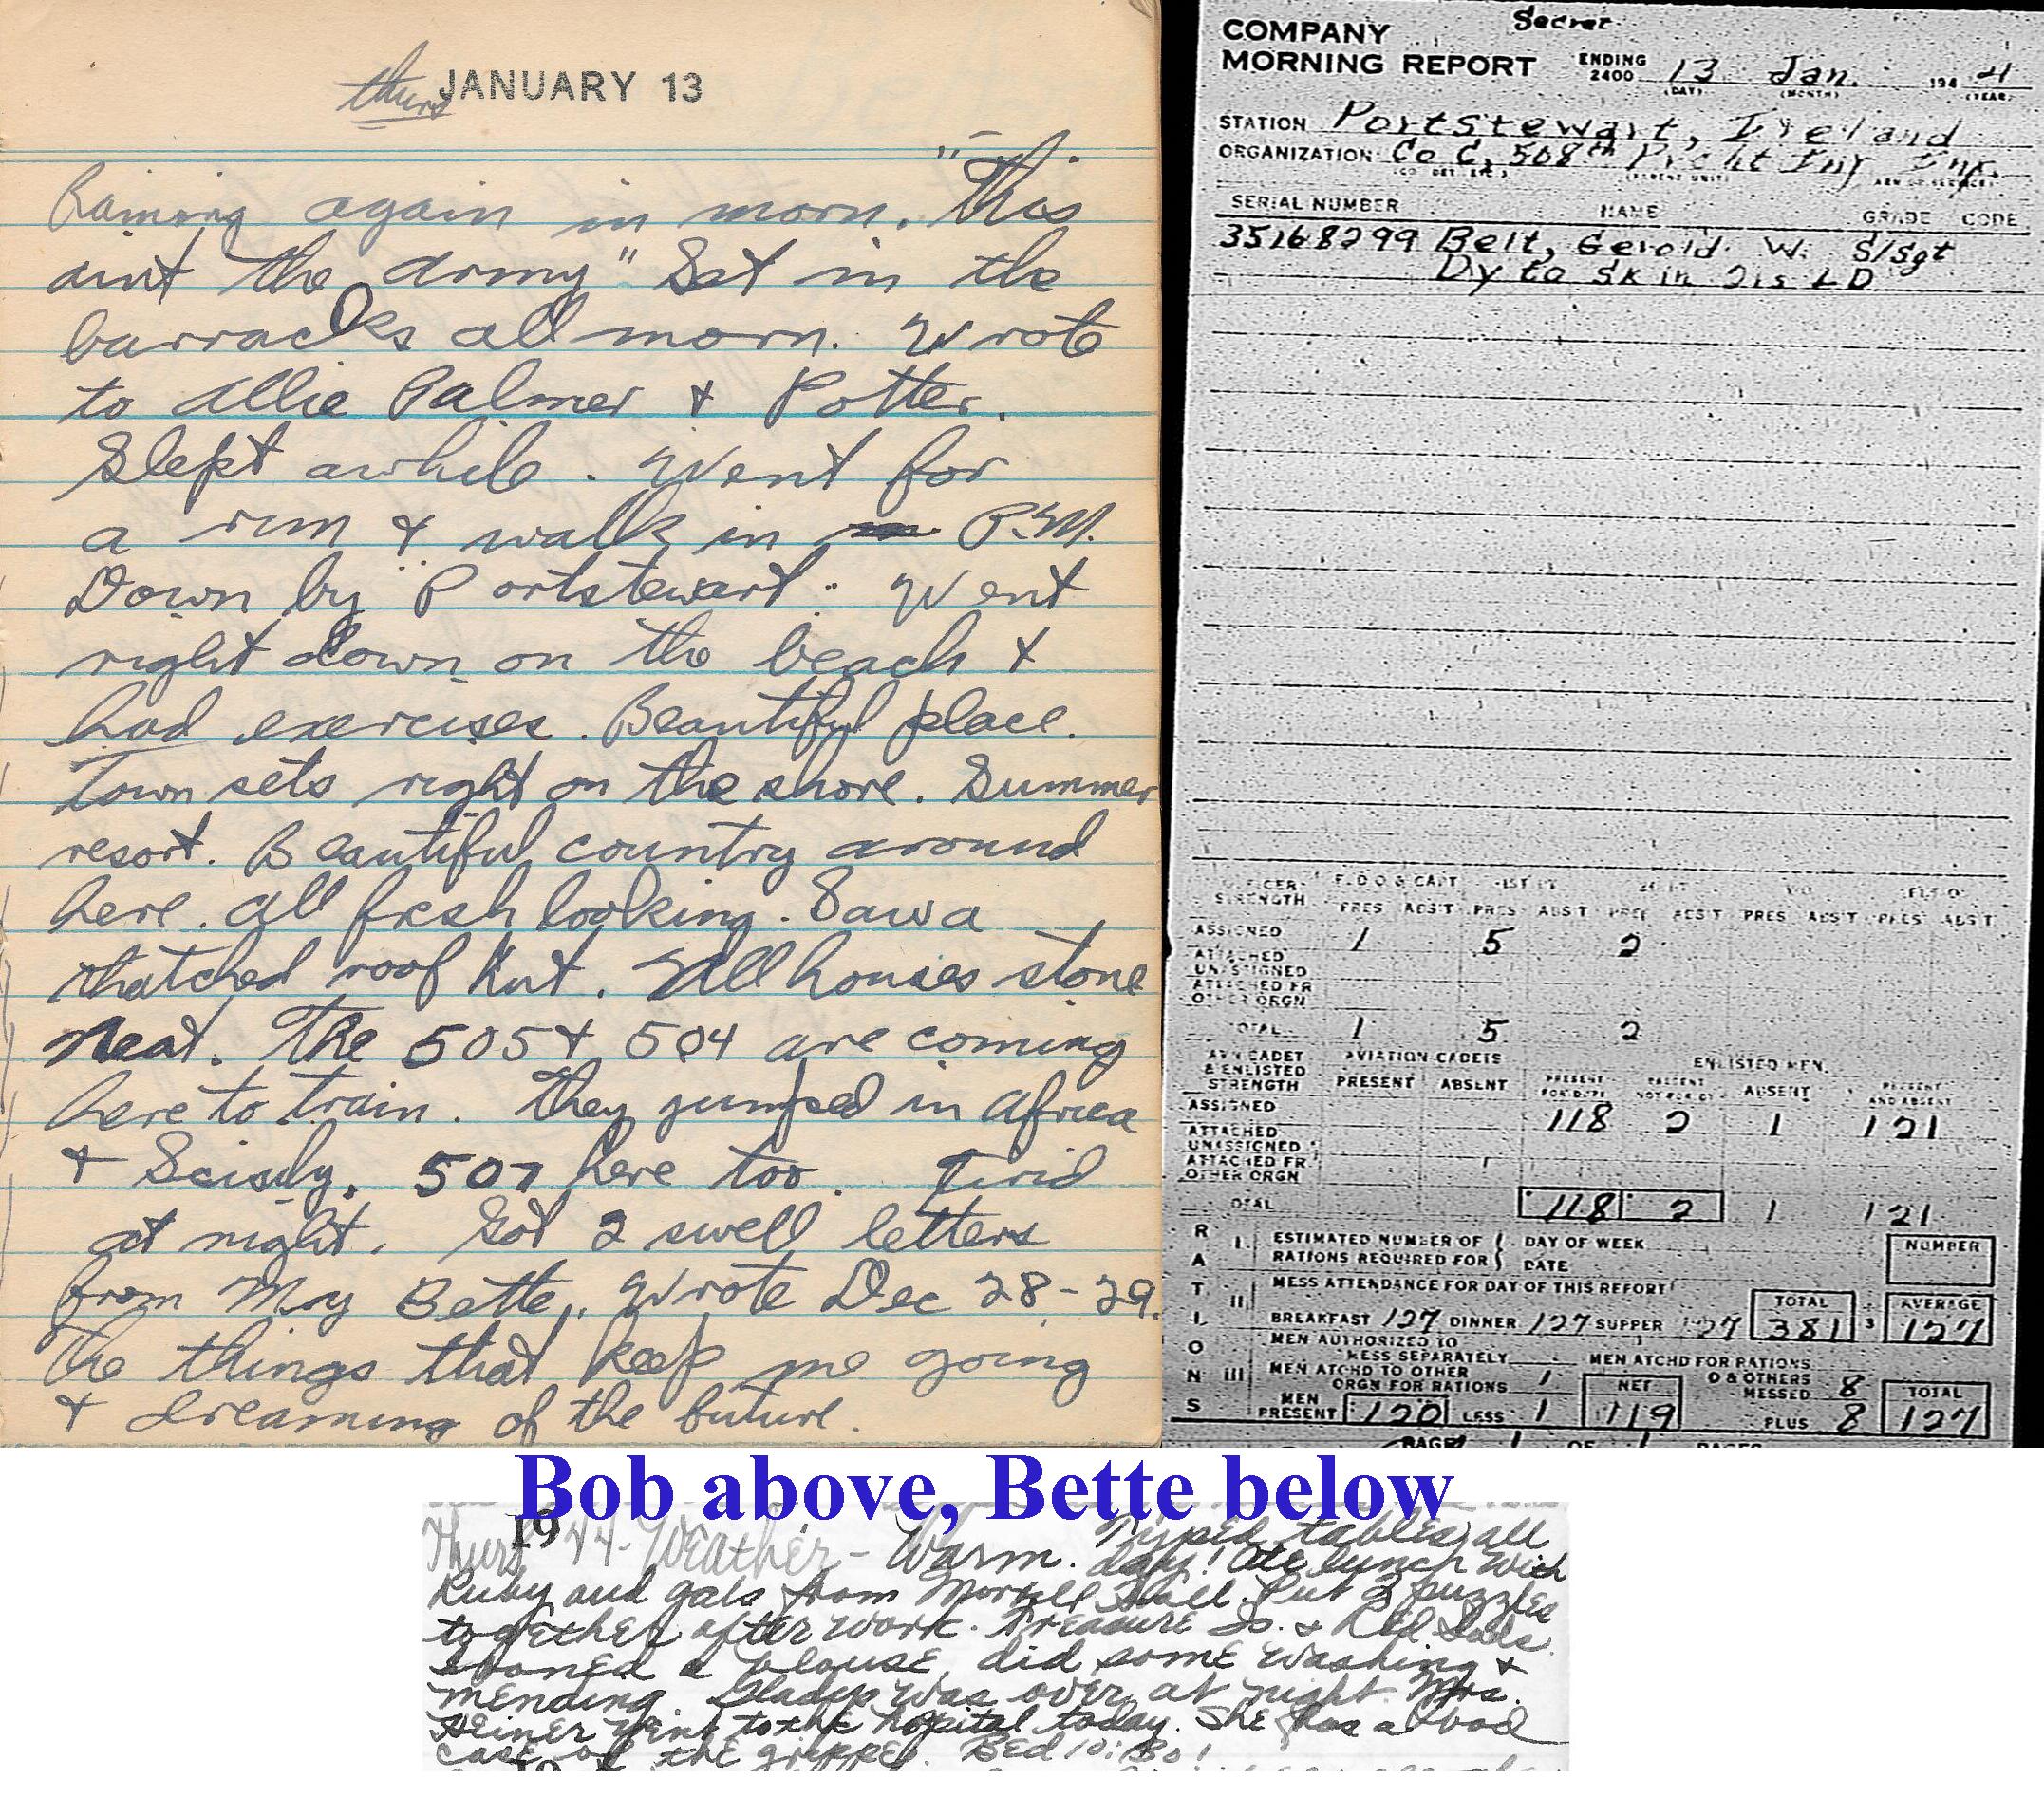 JANUARY 13
thurs
Raining again in morn. "This
aint the army" Set in the
barracks all morn. Wrote
to Allie Palmer & Potter.
Slept awhile. Went for
a run & walk in P.M.
Down by "Portstewart". Went
right down on the beach &
had exercises. Beautiful place.
Town sets right on the shore. Summer
resort. Beautiful country around
here. all fresh looking. Saw a
thatched roof hut. All houses stone
Neat. The 505 & 504 are coming
here to train. They jumped in Africa
& Scisily. 507 here too. Tirid
at night. Got 2 swell letters
from My Bette. Wrote Dec 28-29.
The things that keep me going
& dreaming of the future.
Secret
COMPANY
MORNING REPORT ENDING 2400 13 Jan. 194 4
(DAY) (MONTH) (YEAR)
STATION Portstewart, Ireland
ORGANIZATION Co C, 508th Prcht Inf Inf.
SERIAL NUMBER NAME GRADE CODE
35168299 Belt, Gerold W. S/Sgt
Dy to Sk in LD
OFFICER STRENGTH F.D O & CAPT 1ST LT 2D LT W O FLT O
PRES ABS'T PRES ABS'T PRES ABS'T PRES ABS'T PRES ABS'T
ASSIGNED 1 5 2
ATTACHED UNASSIGNED
ATTACHED FR OTHER ORGN
TOTAL 1 5 2
AVN CADET & ENLISTED STRENGTH AVIATION CADETS ENLISTED MEN
PRESENT ABSENT PRESENT FOR DUTY PRESENT NOT FOR DY ABSENT PRESENT AND ABSENT
ASSIGNED 118 2 1 121
ATTACHED UNASSIGNED
ATTACHED FR OTHER ORGN
TOTAL 118 2 1 121
RATIONS
I. ESTIMATED NUMBER OF RATIONS REQUIRED FOR DAY OF WEEK DATE NUMBER
II. MESS ATTENDANCE FOR DAY OF THIS REPORT
BREAKFAST 127 DINNER 127 SUPPER 127 TOTAL 381 3 AVERAGE 127
III MEN AUTHORIZED TO MESS SEPARATELY MEN ATCHD FOR RATIONS
MEN ATCHD TO OTHER ORGN FOR RATIONS 1 O & OTHERS MESSED 8
MEN PRESENT 120 LESS 1 NET 119 PLUS 8 TOTAL 127
PAGE 1 OF 1 PAGES
Bob above, Bette below
Thurs 1944 - Weather - Warm. Typed tables all
day! Ate lunch with
Ruby and gals from Morrill Hall. Put 2 puzzles
together after work. Treasure Is. & Red Sails.
Ironed a blouse, did some washing &
mending. Gladys was over at night. Mrs.
Heiner went to the hospital today. She has a bad
case of the grippe. Bed 10:30!